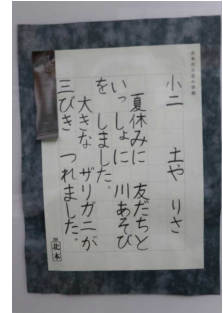 小二 土や りさ
夏休みに 友だちと
いっしょに 川あそび
を しました。
大きな ザリガニが
三びき つれました。